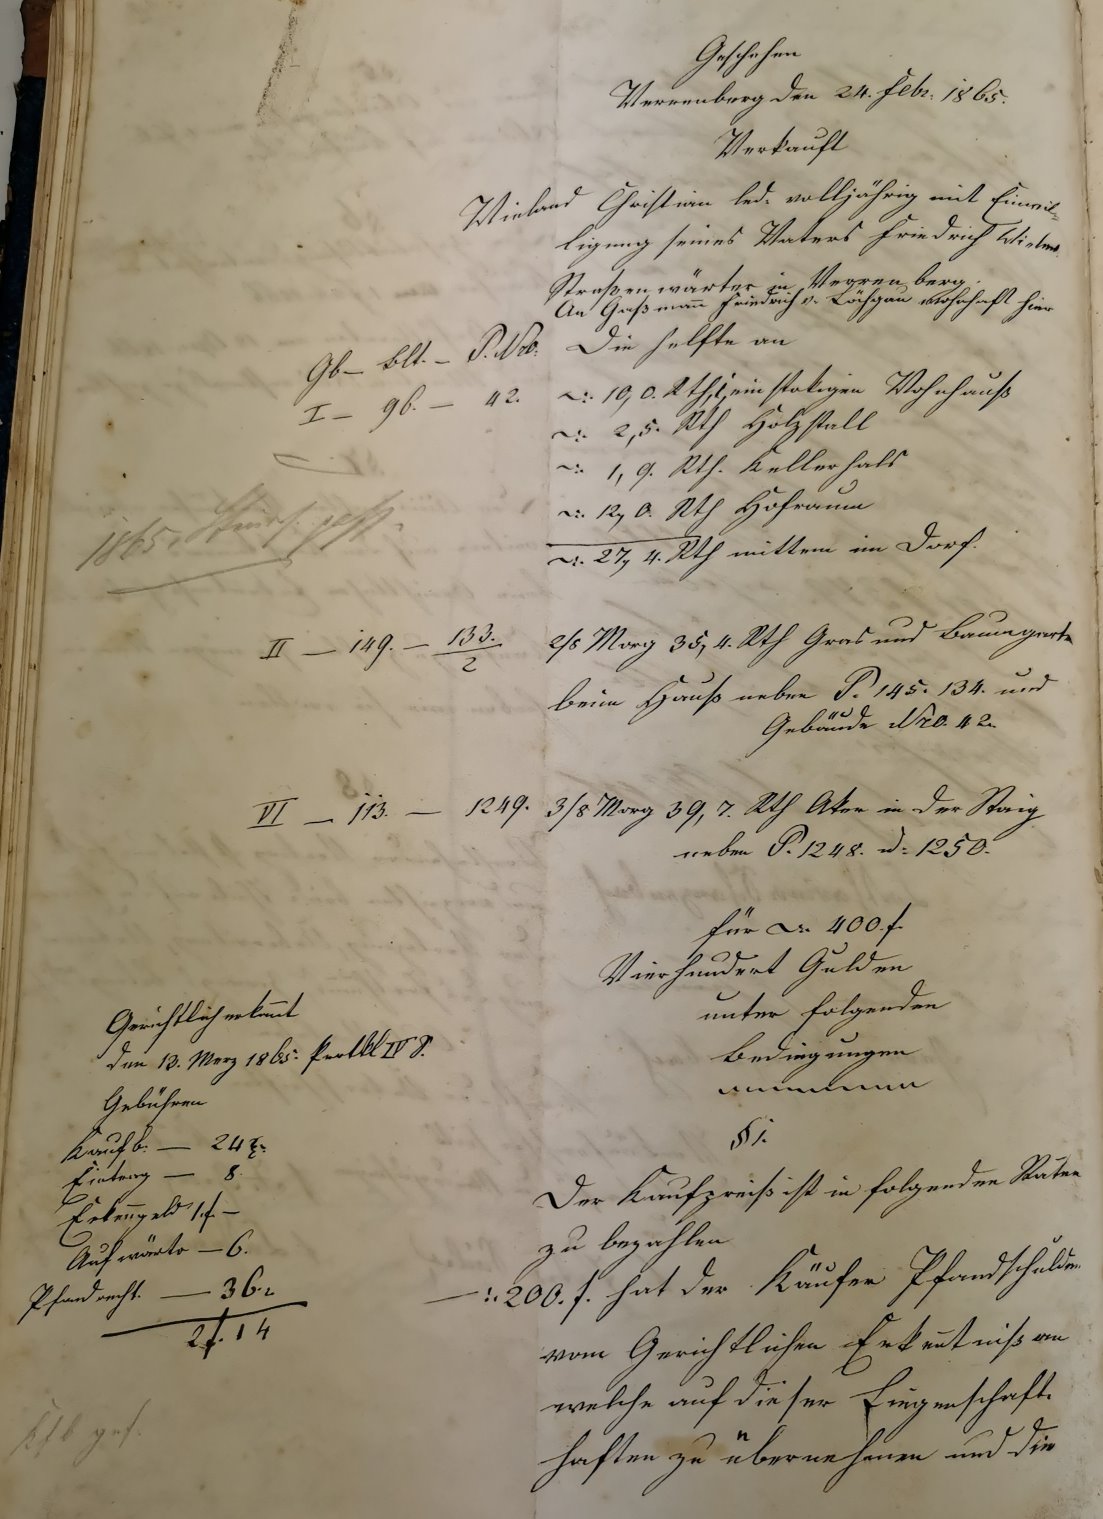 Geschehen
Verrenberg den 24. Febr. 1865.
Verkauft
Wieland Christian led. volljährig mit Einwil-
ligung seines Vaters Friedrich Wieland
Straßenwärter in Verrenberg.
An Gaßmann Friedrich v. Löchgau wohnhaft hier
Gb – Blt. – P. Nro. Die helfte an
I – 96. – 42. 10,0. Rth, einstokigen Wohnhauß
2,5. Rth Holzstall
1,9. Rth. Kellerhals
12,0. Rth Hofraum
1865.
27,4. Rth mitten im Dorf.
II – 149. – 133./2 2/8 Morg 35,4. Rth Gras und Baumgarten
beim Hauß neben P. 145. 134. und
Gebäude Nro. 42.
VI – 113. – 1249. 3/8 Morg 39,7. Rth Aker in der Staig
neben P. 1248. u. 1250.
für 400 f.
Vierhundert Gulden
unter folgenden
Bedingungen
§ 1.
Der Kaufpreiß ist in folgenden Raten
zu bezahlen
–: 200. f. hat der Käufer Pfandschulden
vom Gerichtlichen Erkentniß an
welche auf dieser Liegenschaft
haften zu übernehmen und die
Gerichtlich erkannt
den 13. Merz 1865. IV
Gebühren
Kaufb. — 24 x.
Eintrag — 8.
Erkenngeld 1 f. –
Aufwärter — 6.
Pfandrecht. — 36.
2 f. 14